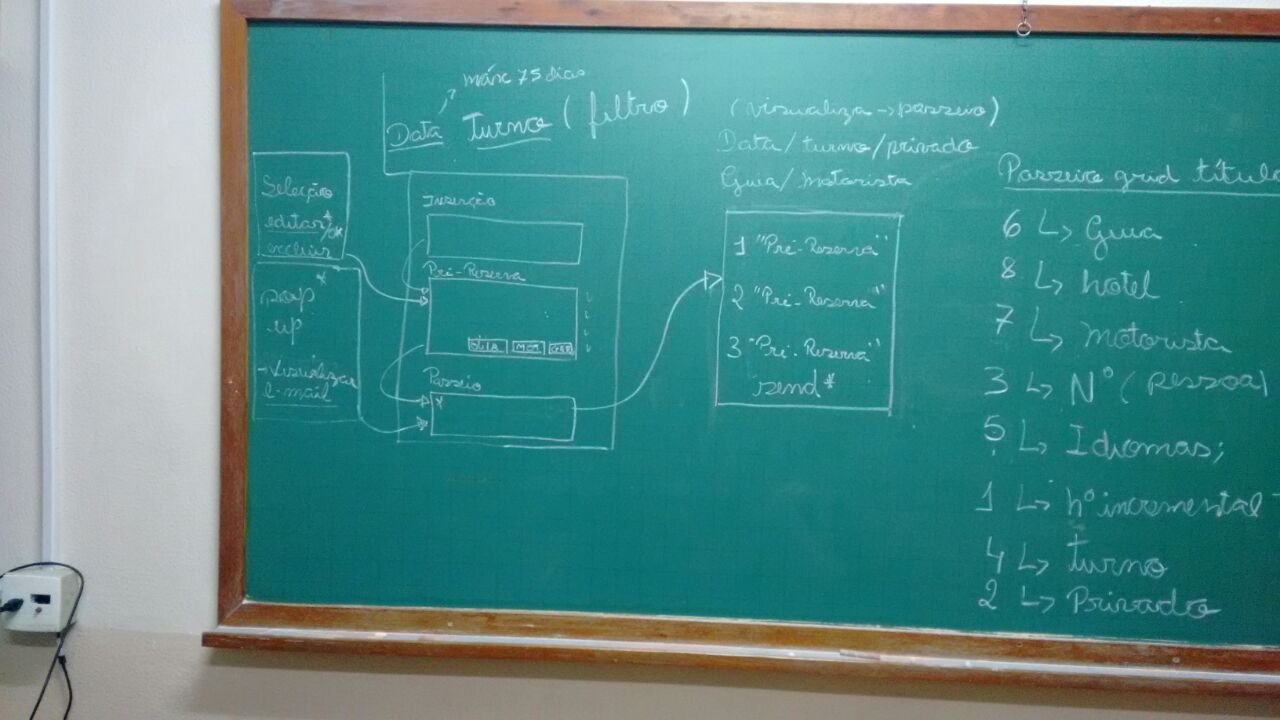 máx 75 dias
Data Turno (filtro)
Seleção
editar/ok
excluir
*
pop
up
→ Visualizar
e-mail
Inserção
Pré-Reserva
GUIA MOT
Passeio
*
(visualiza → passeio)
Data/turno/privado
Guia/Motorista
1 "Pré-Reserva"
2 "Pré-Reserva"
3 "Pré-Reserva"
send *
Passeio grid título
6 ↳ Guia
8 ↳ hotel
7 ↳ motorista
3 ↳ Nº (pessoa)
5 ↳ Idiomas;
1 ↳ nº incremental
4 ↳ turno
2 ↳ Privado